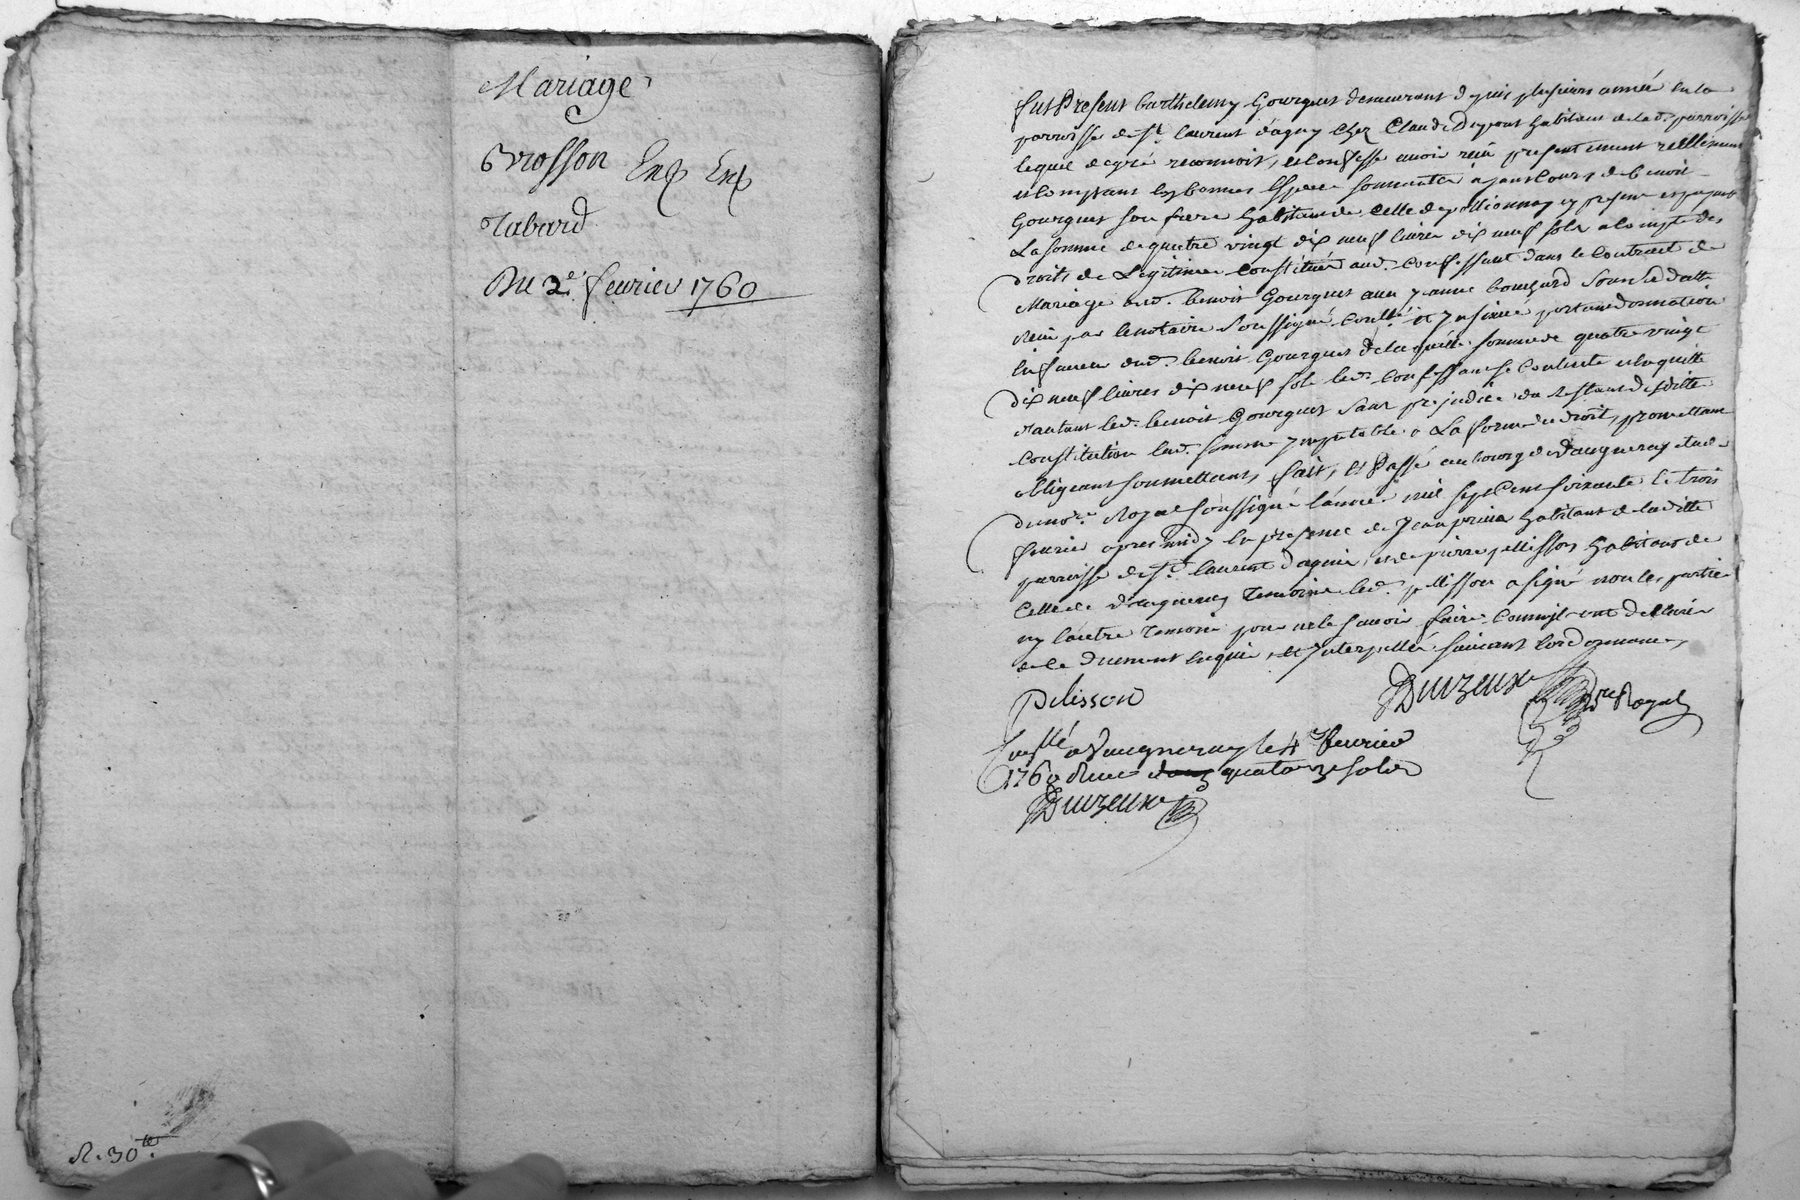 Mariage
Brosson Exp Exp
Tabard
Du 2e. fevrier 1760
R. 30 tt.
fut Present barthelemy Gourgues demeurant depuis plusieurs année en la
parroisse de St. laurent d'agny chez Claude Dupont habitant de lad. parroisse
lequel de gré reconnoit, et Confesse avoir reçû presentement reellement
et comptant en bonnes Espece sonnante ayant Cours de benoit
Gourgues son frere habitant de Celle de pollionnay cy present et payant
La somme de quatre vingt dix neuf livres dix neuf sols a compte des
Droits de Legitime Constitué aud. Confessant dans le Contract de
Mariage dud. benoit Gourgues avec jeanne bouchard sous sa datte
Reçu par le notaire soussigné Conllé. et Insinué portant donnation
En faveur dud. benoit Gourgues de laquelle somme de quatre vingt
dix neuf livres dix neuf sols led. Confessant se Contente et en quitte
d'autant led. benoit Gourgues sans prejudice du Restant de sditte
Constitution lad. somme imputable a La forme de droit, promettant
obligeant soumettant, fait, et Passé au bourg de Vaugneray etude
du nore. Royal soussigné l'année mil sept Cent soixante le trois
fevrier apres midy En presence de Jean habitant de laditte
parroisse de St. laurent d'agnie, et de pierre pellisson habitant de
Celle de Vaugneray temoins led. pellisson a signé non les partie
ny l'autre temoin pour ne le savoir faire Comme ils ont declaré
de ce duement Enquis, et Interpellé suivant l'ordonnance,
Pelisson
Duvzeux nre Royal
Conllé a Vaugneray le 4e fevrier
1760 Recu quatorze sols
Duvzeux